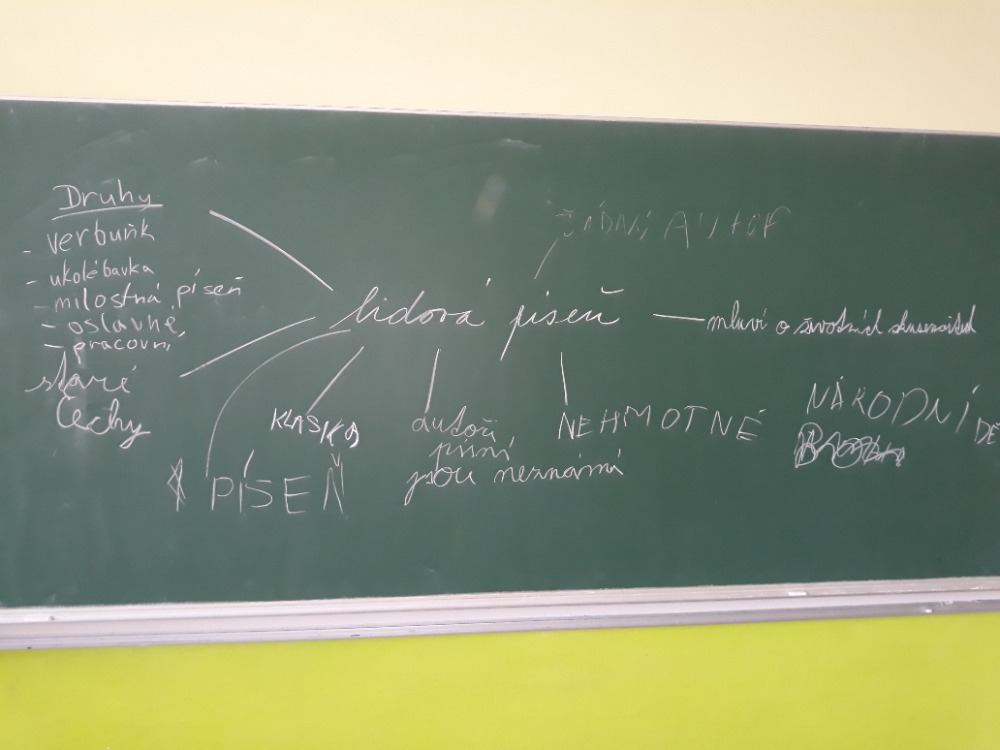 Druhy
- verbuňk
- ukolébavka
- milostná píseň
- oslavné,
- pracovní
staré
Čechy
ŽÁDNÝ AUTOR
lidová píseň
mluví o životních zkušenostech
KLASIKA
autoři
písní
jsou neznámí
NEHMOTNÉ
NÁRODNÍ DĚ
PÍSEŇ